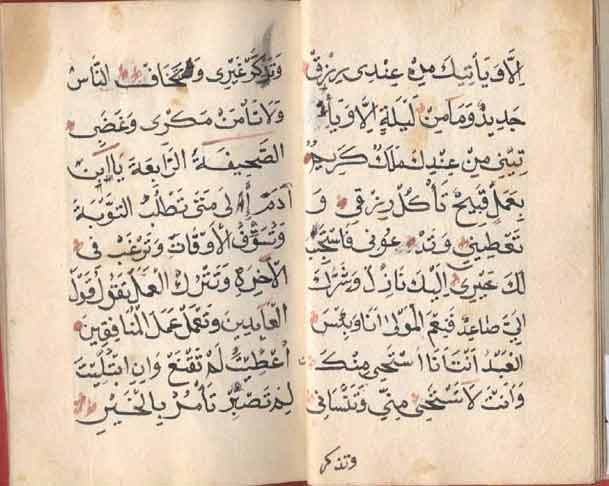 الا و يأتيك من عندي برزق
جديد وما من ليلة الا و يأ
تيني من عندك ملك كريم
بعمل قبيح تأكل رزقي و
تعطيني وتدعوني فاستجب
لك خيري اليك نازل وشرك
الي صاعد فنعم المولى انا وبئس
العبد انت انا استحي منك
وانت لا تستحي مني وتنساني
وتذكر
وتذكر غيري وتخاف الناس
ولا تأمن مكري وغضبي
الصحيفة الرابعة يا ابن
آدم الى متى تطلب التوبة
وتسوف الاوقات وترغب في
الآخرة وتترك العمل يقول قول
العابدين وتعمل عمل المنافقين
اعطيت لم تقنع وان ابتليت
لم تصبر تأمر بالخير